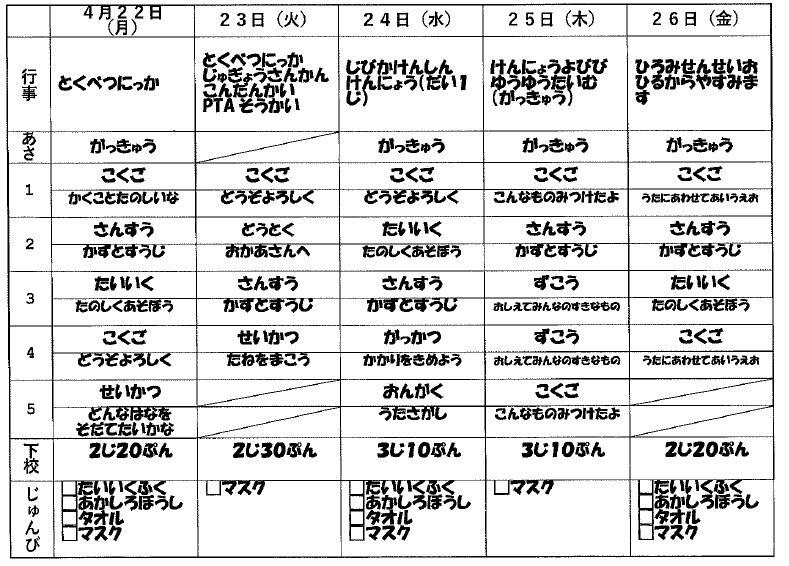 4月22日（月）	23日（火）	24日（水）	25日（木）	26日（金）
行事	とくべつにっか	とくべつにっか じゅぎょうさんかん こんだんかい PTAそうかい	じびかけんしん けんにょう(だい1じ)	けんにょうよびび ゆうゆうたいむ (がっきゅう)	ひろみせんせいお ひるからやすみます
あさ	がっきゅう		がっきゅう	がっきゅう	がっきゅう
1	こくご	こくご	こくご	こくご	こくご
かくことたのしいな	どうぞよろしく	どうぞよろしく	こんなものみつけたよ	うたにあわせてあいうえお
2	さんすう	どうとく	たいいく	さんすう	さんすう
かずとすうじ	おかあさんへ	たのしくあそぼう	かずとすうじ	かずとすうじ
3	たいいく	さんすう	さんすう	ずこう	たいいく
たのしくあそぼう	かずとすうじ	かずとすうじ	おしえてみんなのすきなもの	たのしくあそぼう
4	こくご	せいかつ	がっかつ	ずこう	こくご
どうぞよろしく	たねをまこう	かかりをきめよう	おしえてみんなのすきなもの	うたにあわせてあいうえお
5	せいかつ		おんがく	こくご
どんなはなを そだてたいかな		うたさがし	こんなものみつけたよ
下校	2じ20ぷん	2じ30ぷん	3じ10ぷん	3じ10ぷん	2じ20ぷん
じゅんび	□たいいくふく	□マスク	□たいいくふく	□マスク	□たいいくふく
□あかしろぼうし		□あかしろぼうし		□あかしろぼうし
□タオル		□タオル		□タオル
□マスク		□マスク		□マスク